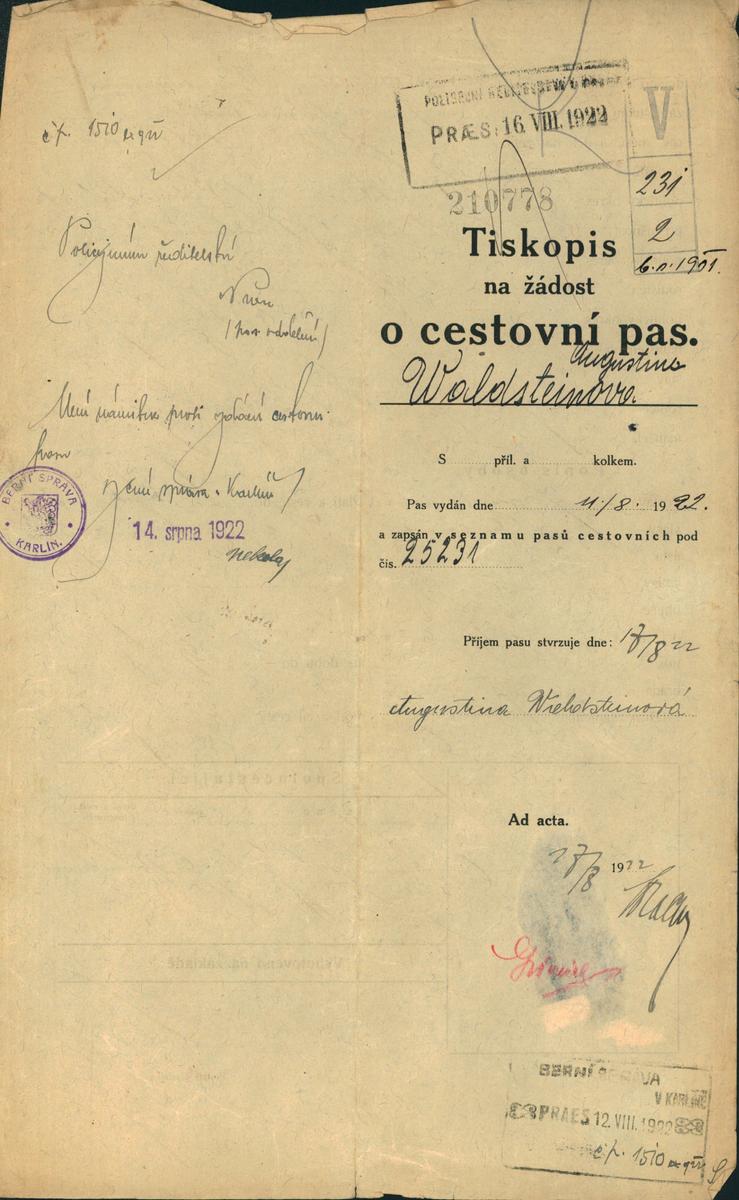 č.p. 1510
Policejnímu ředitelství
v Praze
(pas. oddělení)
Není námitek proti vydání cestovn.
pasu
Berní správa v Karlíně
BERNÍ SPRÁVA
KARLÍN.
14. srpna 1922
POLICEJNÍ ŘEDITELSTVÍ V PRAZE
PRÆS. 16. VIII. 1922
210778
V
231
2
6.n. 1901.
Tiskopis
na žádost
o cestovní pas.
Augustina
Waldsteinova
S příl. a kolkem.
Pas vydán dne 11/8. 1922.
a zapsán v seznamu pasů cestovních pod
čís. 25231
Příjem pasu stvrzuje dne: 17/8 22
Augustina Waldsteinová
Ad acta.
17/8 1922
BERNÍ SPRÁVA
V KARLÍNĚ
PRAES 12. VIII. 1922
č.p. 1510